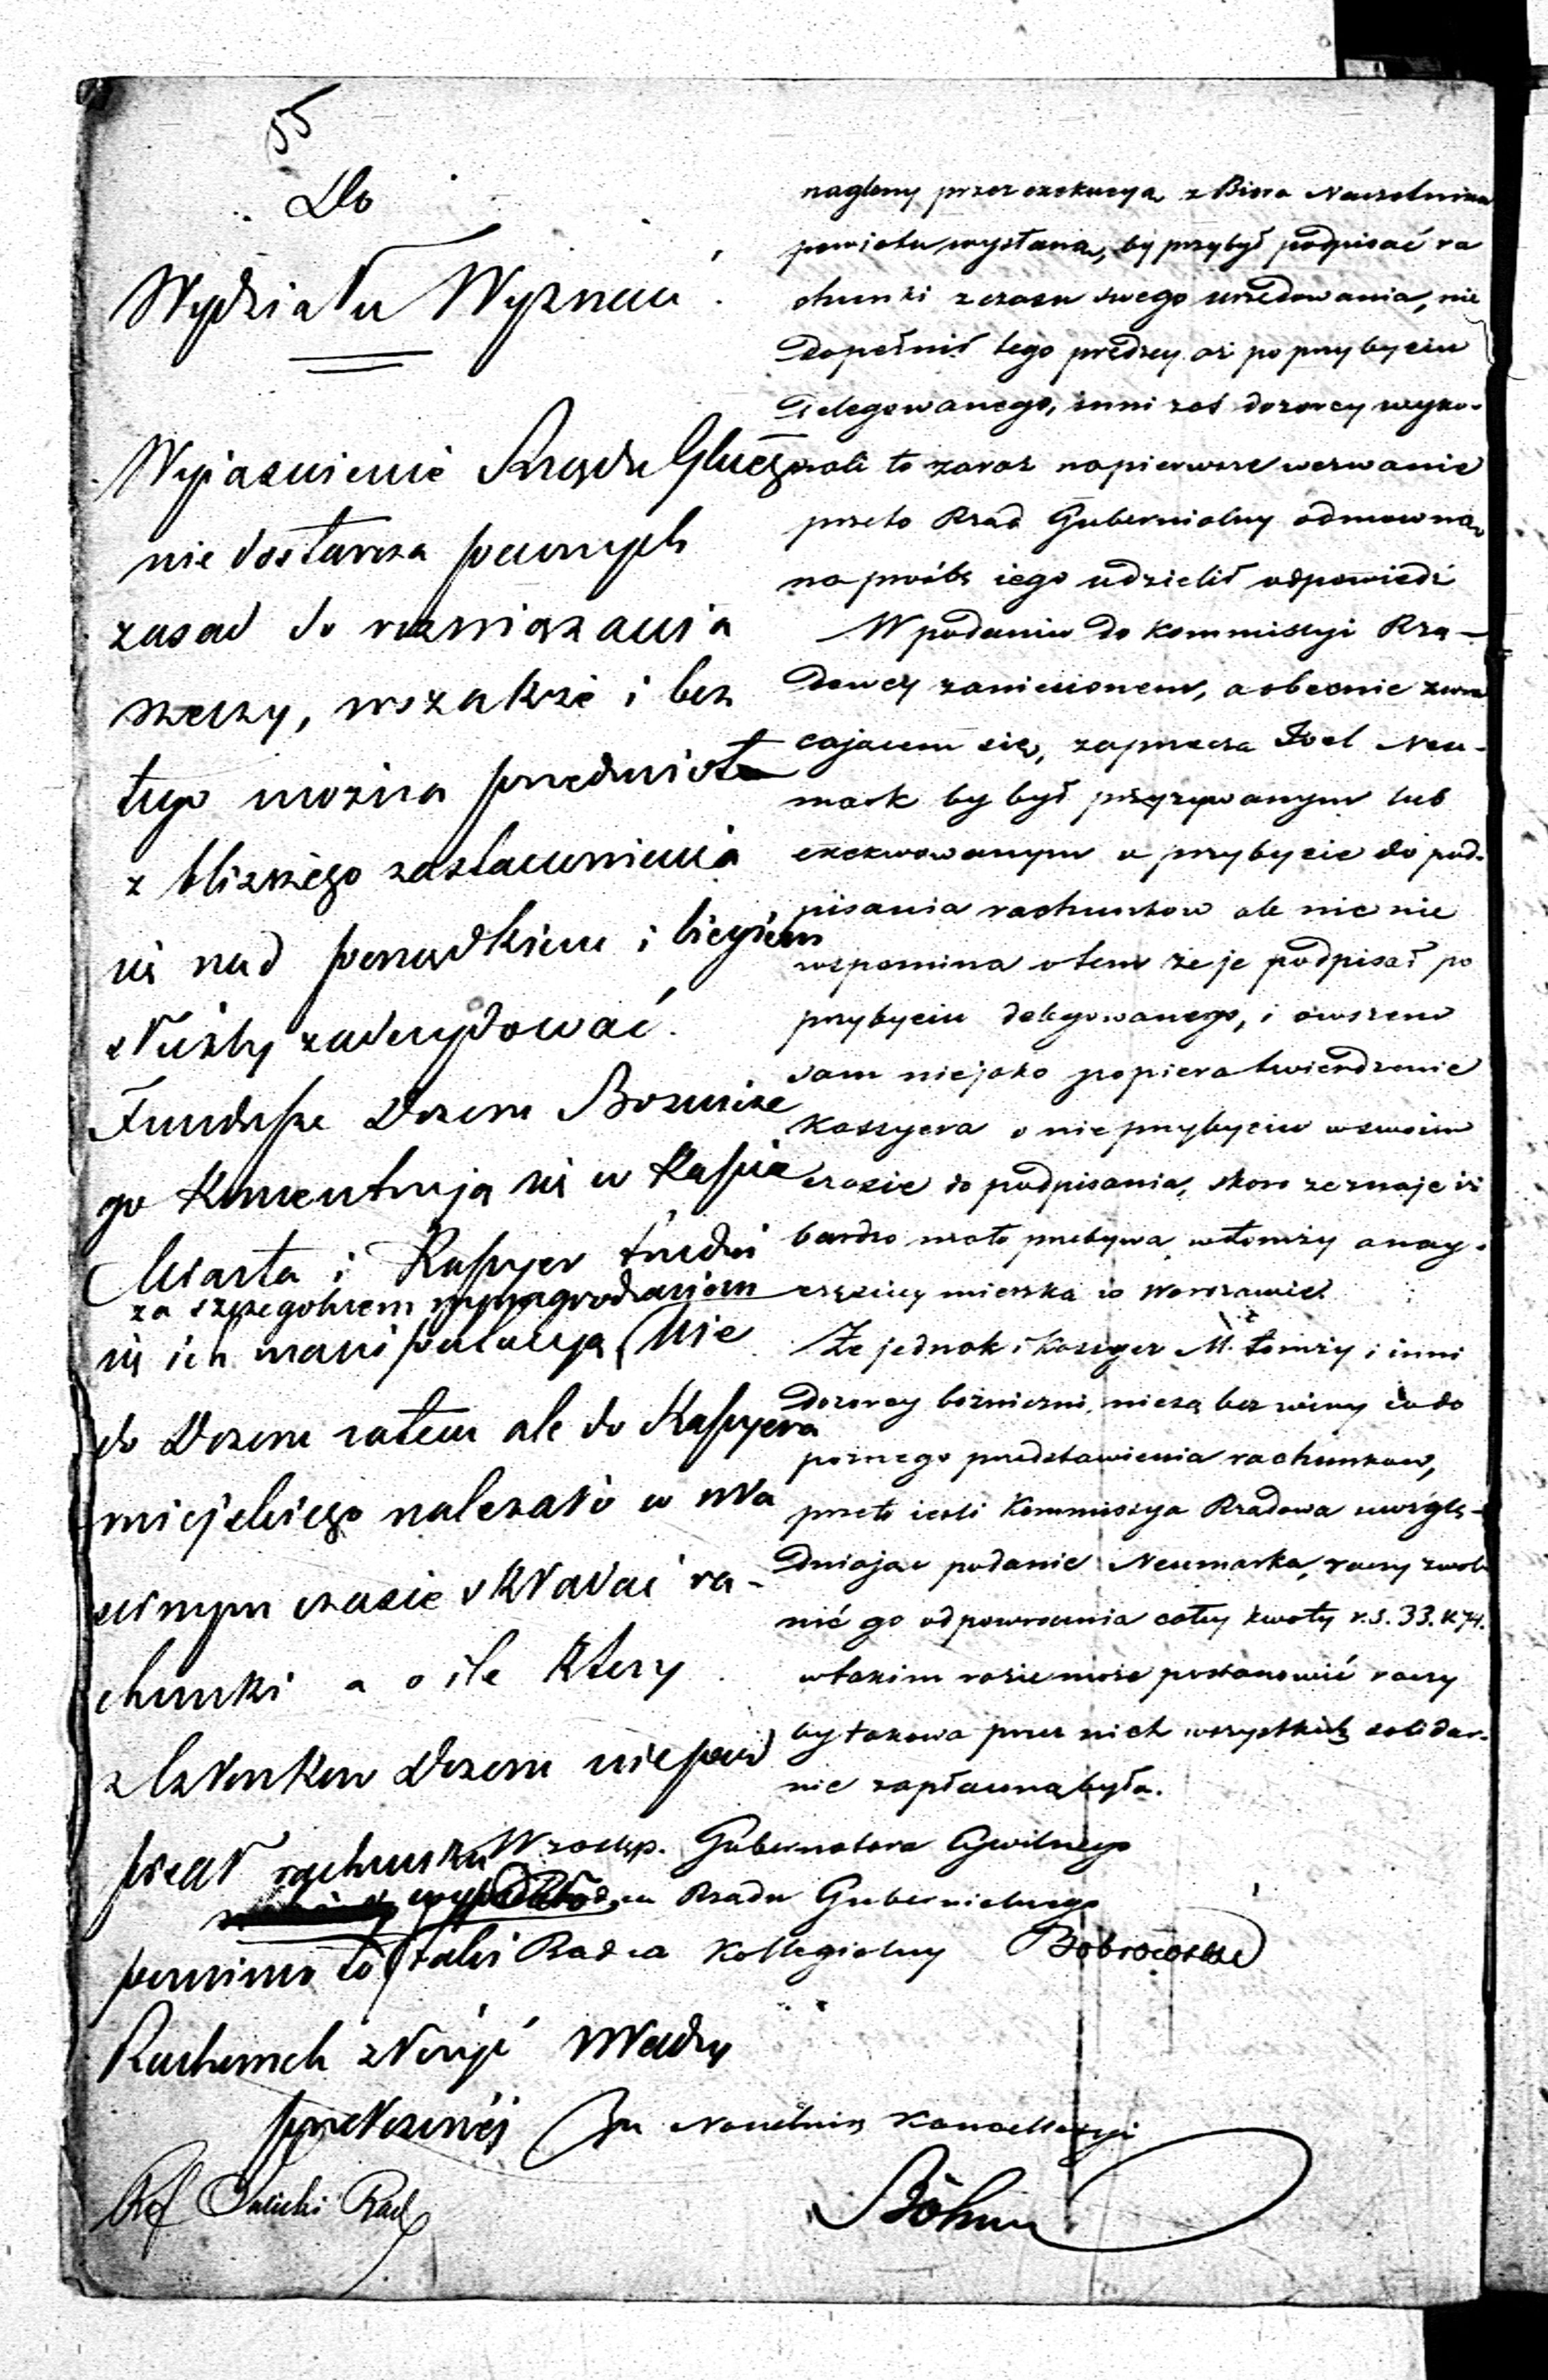 55
Do
Wydziału Wyznań.
Wyjaśnienie Rządu Glnego
nie dostarcza pewnych
zasad do rozwiązania
rzeczy, wszakże i bez
tego można przedmiot
z bliższego zastanowienia
się nad porządkiem i biegiem
służby zadecydować.
Fundusze Dozoru Bożnicze
go koncentrują się w Kassie
Miasta i Kassyer trudni
za szczególnem wynagrodzeniem
się ich manipulacyą, Nie
do Dozoru zatem ale do Kassyera
miejskiego należało w wła
ściwym czasie składać ra-
chunki a o ile który
z Członków Dozoru niepod
pisał rachunku
pomimo to
Rachunek złożyć władzy
przełożonéj
Ref Rad
naglony przez exekucyą z Biura Naczelnika
powiatu wysłaną, by przybył podpisać ra
chunki z czasu swego urzędowania, nie
dopełnił tego prędzey aż po przybyciu
Delegowanego, inni zaś dozorcy wyko-
nali to zaraz na pierwsze wezwanie
przeto Rząd Gubernialny odmowną
na prośbę iego udzielił odpowiedź
W podaniu do Kommissyi Rzą-
dowey zaniesionem, a obecnie zwra
cającem się, zaprzecza Joel Neu-
mark by był przyzywanym lub
exekwowanym o przybycie do pod-
pisania rachunków ale nic nie
wspomina o tem że je podpisał po
przybyciu delegowanego, i owszem
sam niejako popiera twierdzenie
Kassyera o nieprzybyciu w swoim
czasie do podpisania, skoro zeznaje iż
bardzo mało przebywa w Łomży a nay-
częściey mieszka w Warszawie.
Że jednak i Kassyer M. Łomży i inni
Dozorcy bożniczni, nie są bez winy co do
poznego przedstawienia rachunków,
przeto ieśli Kommissya Rządowa uwzglę-
dniając podanie Neumarka, raczy zwol
nić go od powrócenia całey kwoty r.s. 33. k 74.
w takim razie może postanowić raczy
by takowa przez nich wszystkich solidar-
nie zapłaconą była.
W zastęp. Gubernatora Cywilnego
Radca Rządu Gubernialnego
Radca Kollegialny Bobrowski
Za Naczelnik Kancellaryi
Böhm